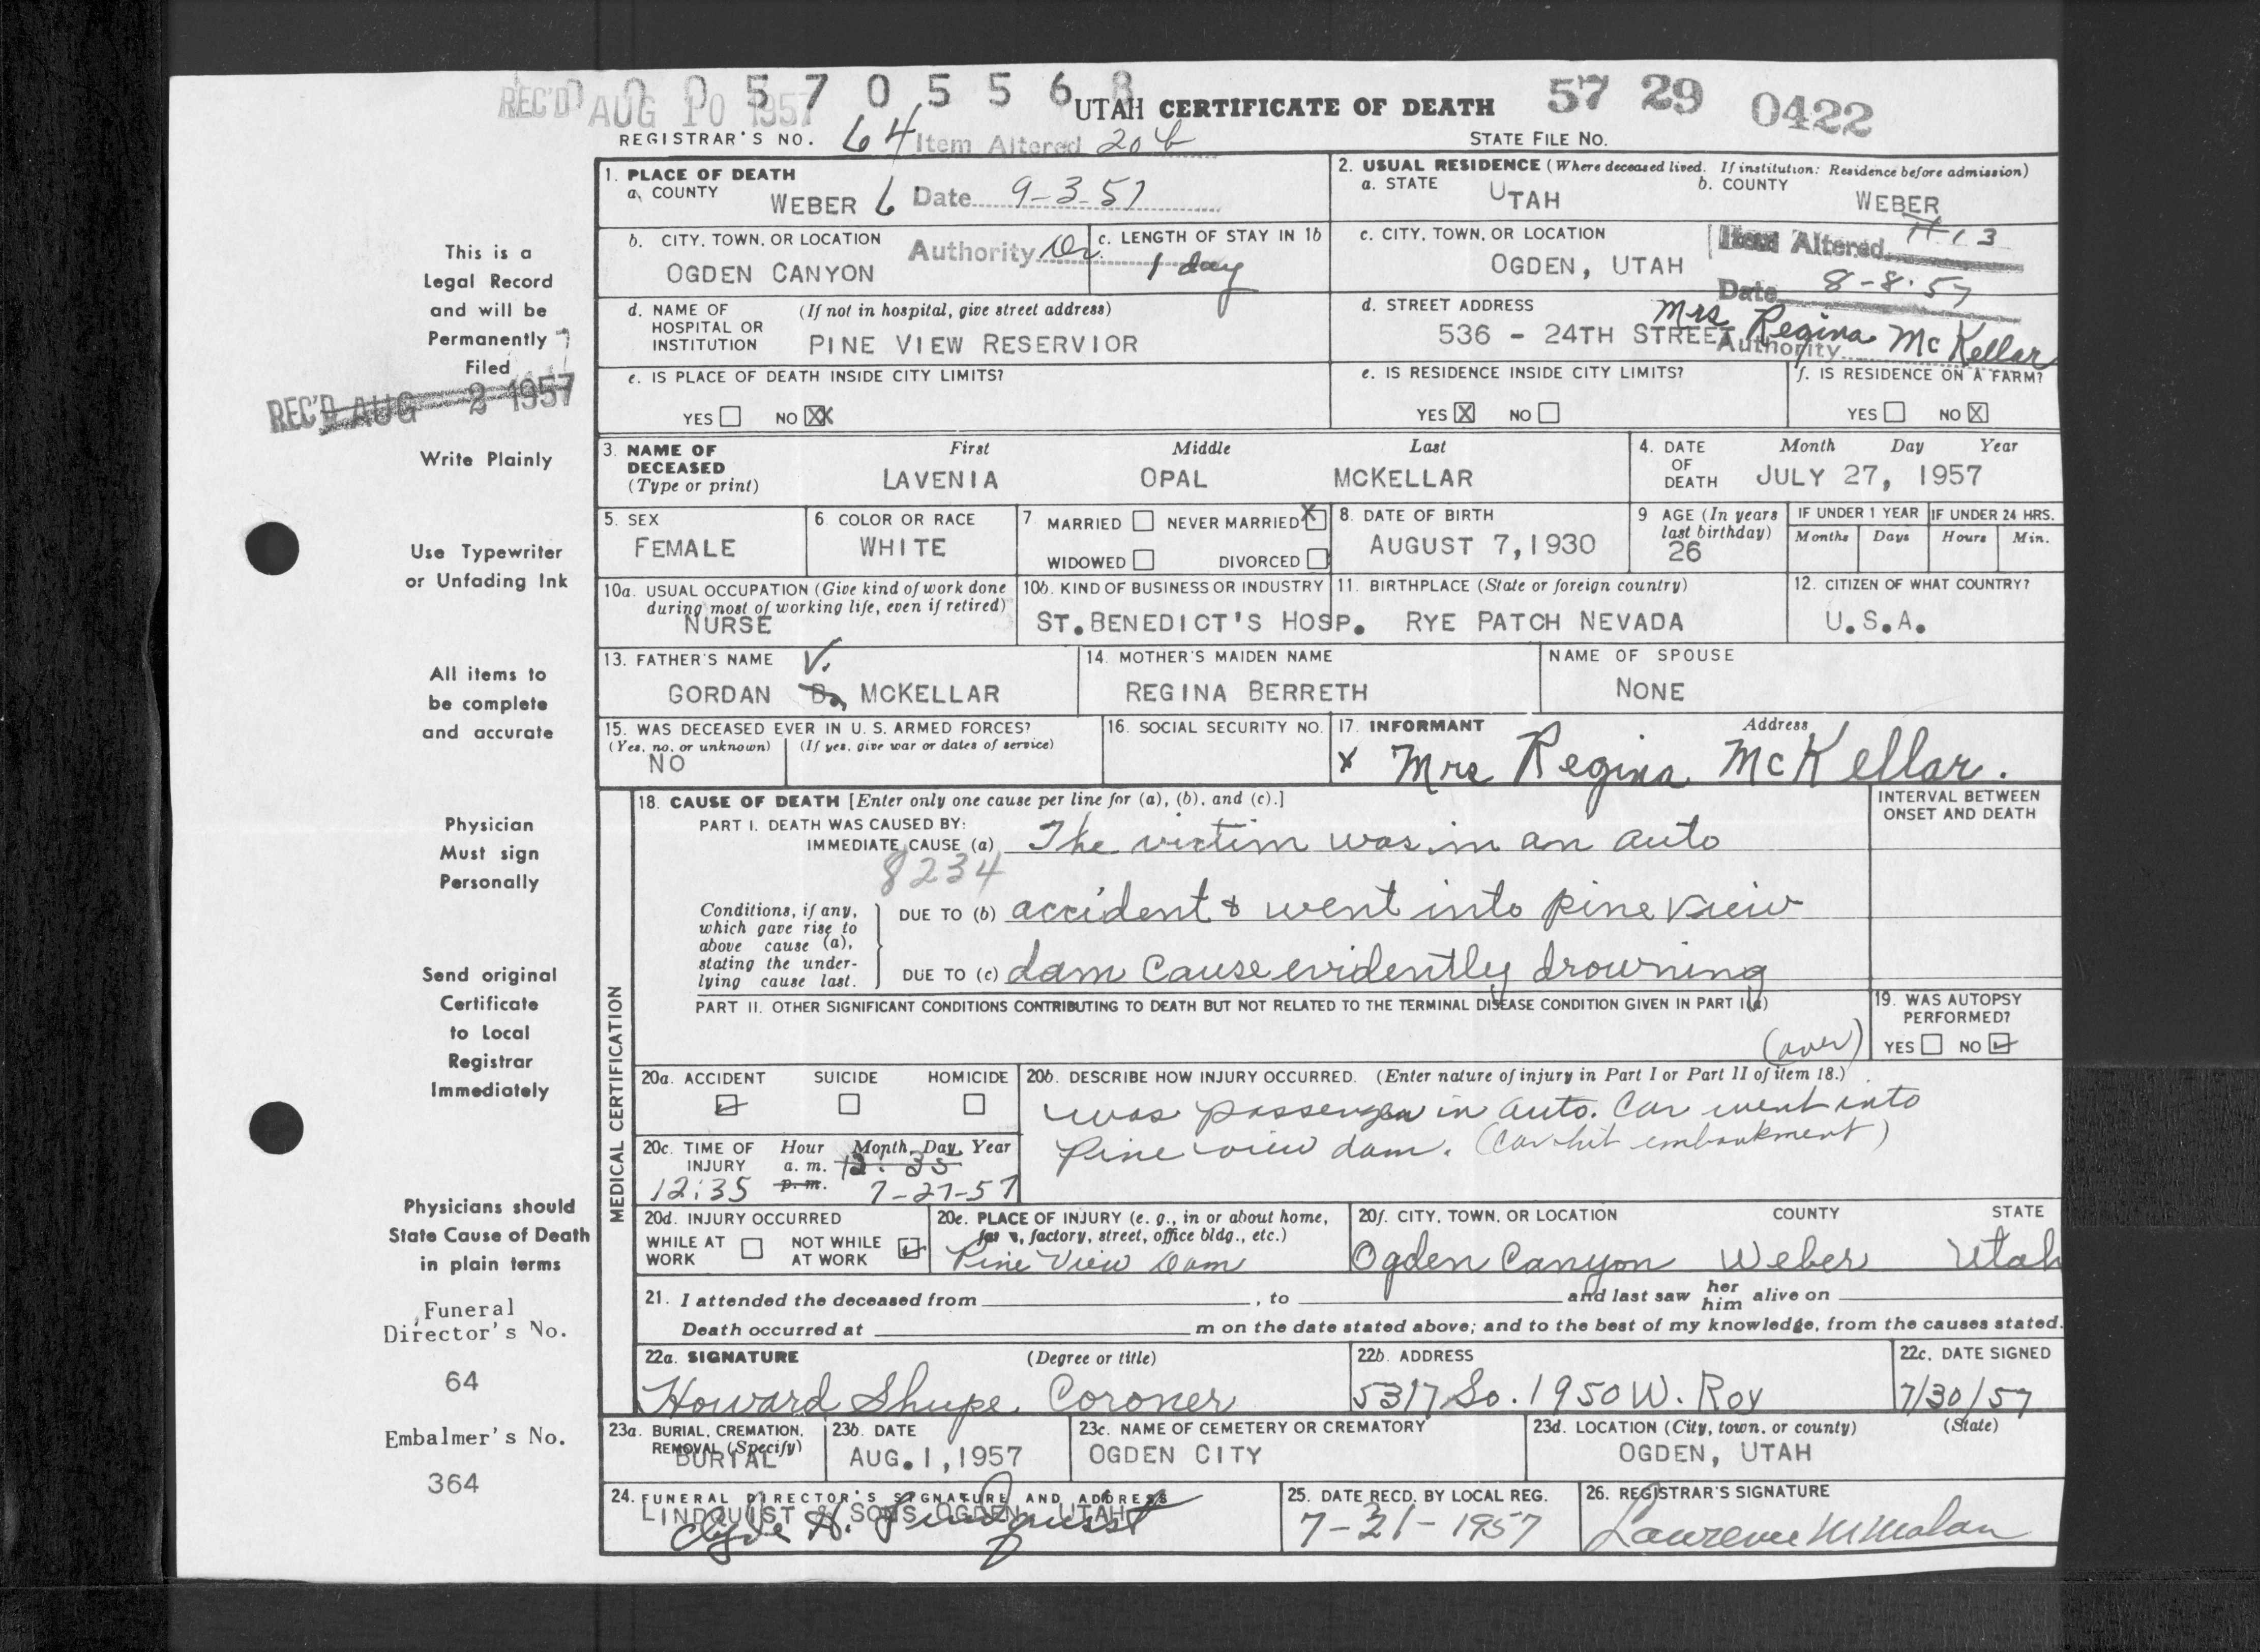 REC'D AUG 10 1957
0 0 5 7 0 5 5 6 8
UTAH CERTIFICATE OF DEATH
57 29 0422
REGISTRAR'S NO. 64
Item Altered 20b
STATE FILE NO.
1. PLACE OF DEATH
a. COUNTY
WEBER 6
Date 9-3-57
2. USUAL RESIDENCE (Where deceased lived. If institution: Residence before admission)
a. STATE UTAH
b. COUNTY WEBER
b. CITY, TOWN, OR LOCATION
OGDEN CANYON
Authority Dr.
c. LENGTH OF STAY IN 1b
1 day
c. CITY, TOWN, OR LOCATION
OGDEN, UTAH
Item Altered #13
Date 8-8-57
Authority Mrs Regina McKellar
d. NAME OF HOSPITAL OR INSTITUTION (If not in hospital, give street address)
PINE VIEW RESERVIOR
d. STREET ADDRESS
536 - 24TH STREET
e. IS PLACE OF DEATH INSIDE CITY LIMITS?
YES NO XX
e. IS RESIDENCE INSIDE CITY LIMITS?
YES X NO
f. IS RESIDENCE ON A FARM?
YES NO X
3. NAME OF DECEASED (Type or print)
First Middle Last
LAVENIA OPAL MCKELLAR
4. DATE OF DEATH
Month Day Year
JULY 27, 1957
5. SEX
FEMALE
6. COLOR OR RACE
WHITE
7. MARRIED NEVER MARRIED X
WIDOWED DIVORCED
8. DATE OF BIRTH
AUGUST 7, 1930
9. AGE (In years last birthday)
26
IF UNDER 1 YEAR
Months Days
IF UNDER 24 HRS.
Hours Min.
10a. USUAL OCCUPATION (Give kind of work done during most of working life, even if retired)
NURSE
10b. KIND OF BUSINESS OR INDUSTRY
ST. BENEDICT'S HOSP.
11. BIRTHPLACE (State or foreign country)
RYE PATCH NEVADA
12. CITIZEN OF WHAT COUNTRY?
U.S.A.
13. FATHER'S NAME
V.
GORDAN B. MCKELLAR
14. MOTHER'S MAIDEN NAME
REGINA BERRETH
NAME OF SPOUSE
NONE
15. WAS DECEASED EVER IN U. S. ARMED FORCES?
(Yes, no, or unknown) (If yes, give war or dates of service)
NO
16. SOCIAL SECURITY NO.
17. INFORMANT Address
x Mrs Regina McKellar.
MEDICAL CERTIFICATION
18. CAUSE OF DEATH [Enter only one cause per line for (a), (b), and (c).]
INTERVAL BETWEEN ONSET AND DEATH
PART I. DEATH WAS CAUSED BY:
IMMEDIATE CAUSE (a) The victim was in an auto
8234
Conditions, if any, which gave rise to above cause (a), stating the underlying cause last.
DUE TO (b) accident & went into pine view
DUE TO (c) dam cause evidently drowning
PART II. OTHER SIGNIFICANT CONDITIONS CONTRIBUTING TO DEATH BUT NOT RELATED TO THE TERMINAL DISEASE CONDITION GIVEN IN PART I(a)
(over)
19. WAS AUTOPSY PERFORMED?
YES NO
20a. ACCIDENT SUICIDE HOMICIDE
20b. DESCRIBE HOW INJURY OCCURRED. (Enter nature of injury in Part I or Part II of item 18.)
was passenger in auto. Car went into
Pine view dam. (Car hit embankment)
20c. TIME OF INJURY
Hour Month, Day, Year
a. m. 12:35
12:35 p. m. 7-27-57
20d. INJURY OCCURRED
WHILE AT WORK NOT WHILE AT WORK
20e. PLACE OF INJURY (e. g., in or about home, farm, factory, street, office bldg., etc.)
Pine View Dam
20f. CITY, TOWN, OR LOCATION COUNTY STATE
Ogden Canyon Weber Utah
21. I attended the deceased from , to and last saw her him alive on
Death occurred at m on the date stated above; and to the best of my knowledge, from the causes stated.
22a. SIGNATURE (Degree or title)
Howard Shupe Coroner
22b. ADDRESS
5317 So. 1950 W. Roy
22c. DATE SIGNED
7/30/57
23a. BURIAL, CREMATION, REMOVAL (Specify)
BURIAL
23b. DATE
AUG. 1, 1957
23c. NAME OF CEMETERY OR CREMATORY
OGDEN CITY
23d. LOCATION (City, town, or county) (State)
OGDEN, UTAH
24. FUNERAL DIRECTOR'S SIGNATURE AND ADDRESS
LINDQUIST & SONS OGDEN, UTAH
Clyde H. Lindquist
25. DATE RECD. BY LOCAL REG.
7-31-1957
26. REGISTRAR'S SIGNATURE
Laurence M Malan
This is a
Legal Record
and will be
Permanently
Filed
REC'D AUG 2 1957
Write Plainly
Use Typewriter
or Unfading Ink
All items to
be complete
and accurate
Physician
Must sign
Personally
Send original
Certificate
to Local
Registrar
Immediately
Physicians should
State Cause of Death
in plain terms
Funeral
Director's No.
64
Embalmer's No.
364